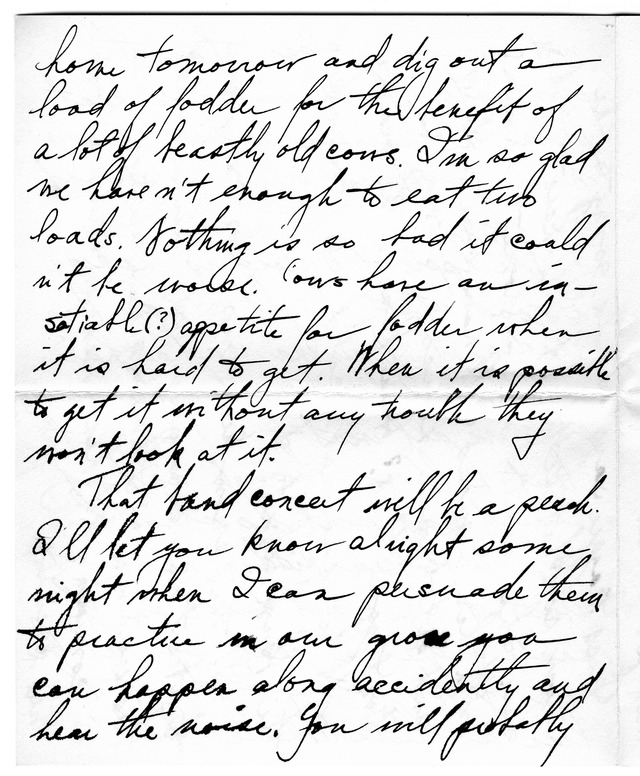 home tomorrow and dig out a
load of fodder for the benefit of
a lot of beastly old cows. I'm so glad
we haven't enough to eat two
loads. Nothing is so bad it could
n't be worse. Cows have an in-
satiable(?) appetite for fodder when
it is hard to get. When it is possible
to get it without any trouble they
won't look at it.
That band concert will be a peach.
I'll let you know alright some
night when I can pursuade them
to practice in our grove you
can happen along accidently and
hear the noise. You will probably